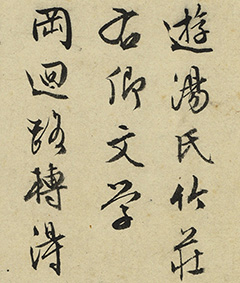 遊湯氏竹莊
右卿文学
岡迴路轉得